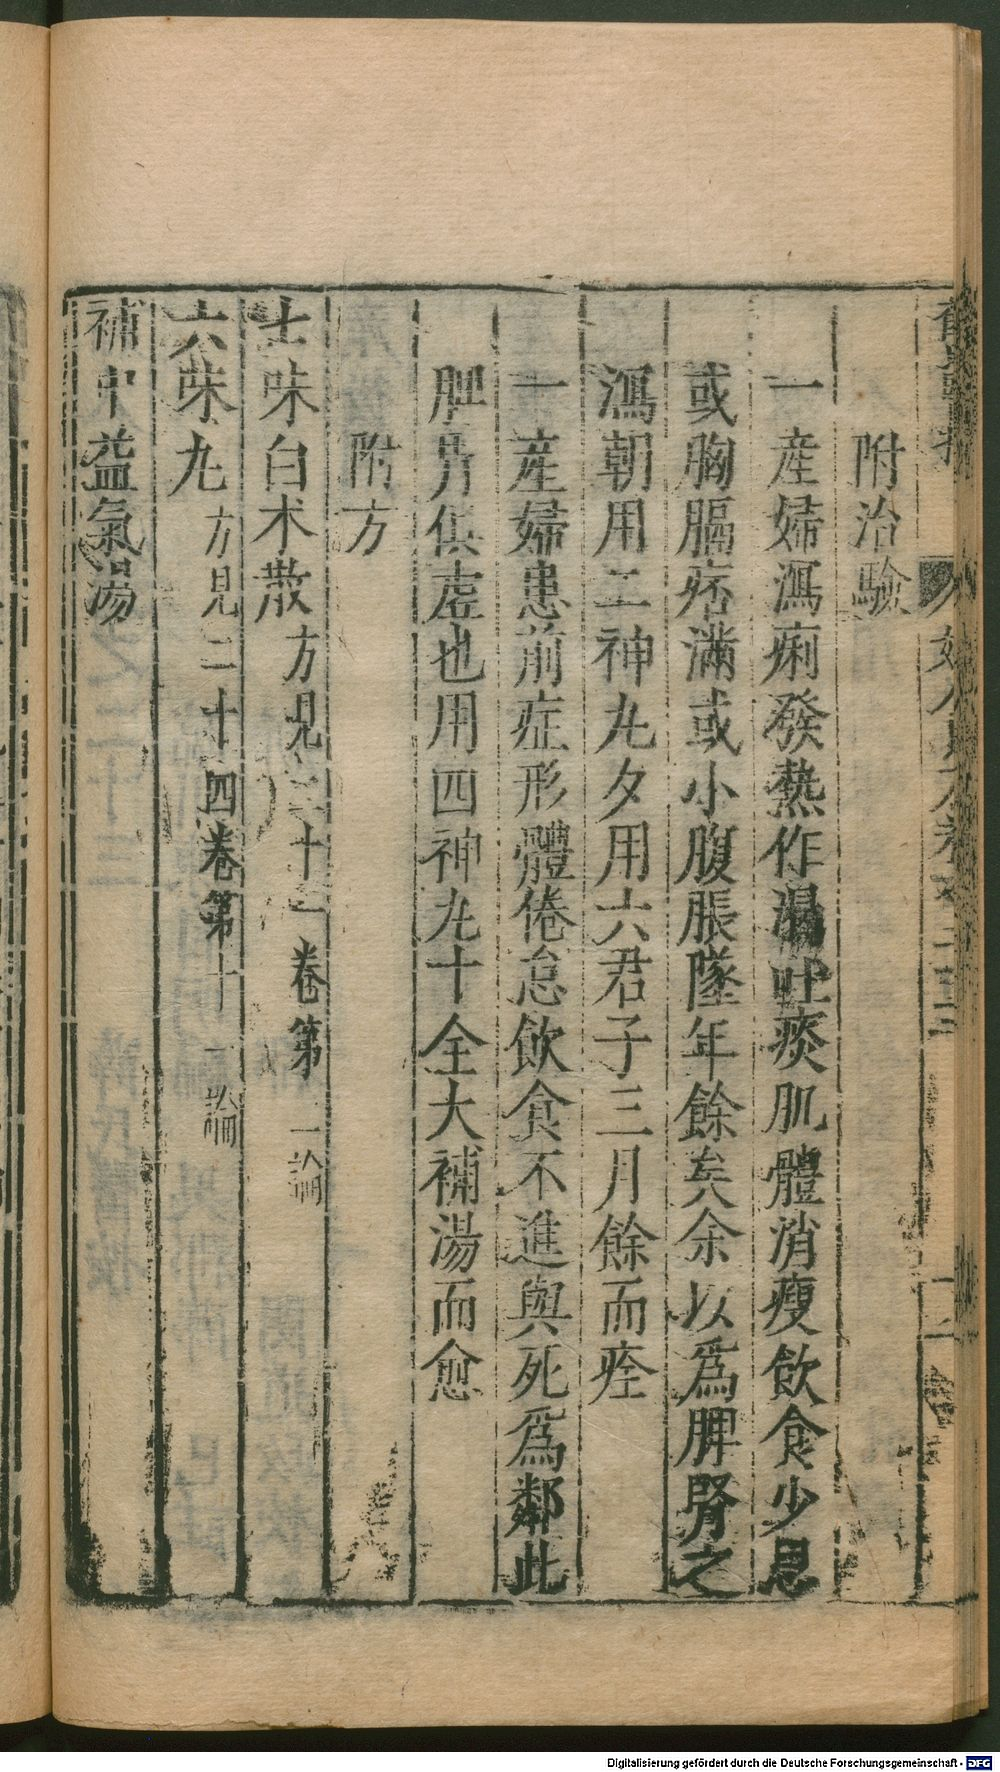 附治驗
一產婦瀉痢發熱作渴吐痰肌體消瘦飲食少思
或胸膈痞滿或小腹脹墜年餘矣余以爲脾腎之
瀉朝用二神丸夕用六君子三月餘而痊
一產婦患前症形體倦怠飲食不進與死爲鄰此
脾腎俱虛也用四神丸十全大補湯而愈
附方
七味白术散方見二十一卷第 一論
六味丸方見二十四卷第十 一論
補中益氣湯
Digitalisierung gefördert durch die Deutsche Forschungsgemeinschaft - DFG